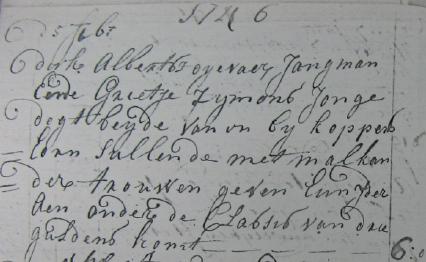 1726
d 5 feb:
dirk Alberts oyevaer Jongman
Ende Grietje Zymons Jonge
dogt beyde van en by hoppen
Eorn Sullende met malkan
der trouwen geven Een yder
Aen onder de Classis van drie
guldens komt 6:0